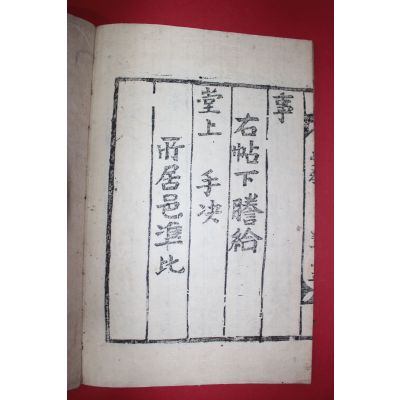 事
右帖下謄給
堂上 手决
所居邑準比